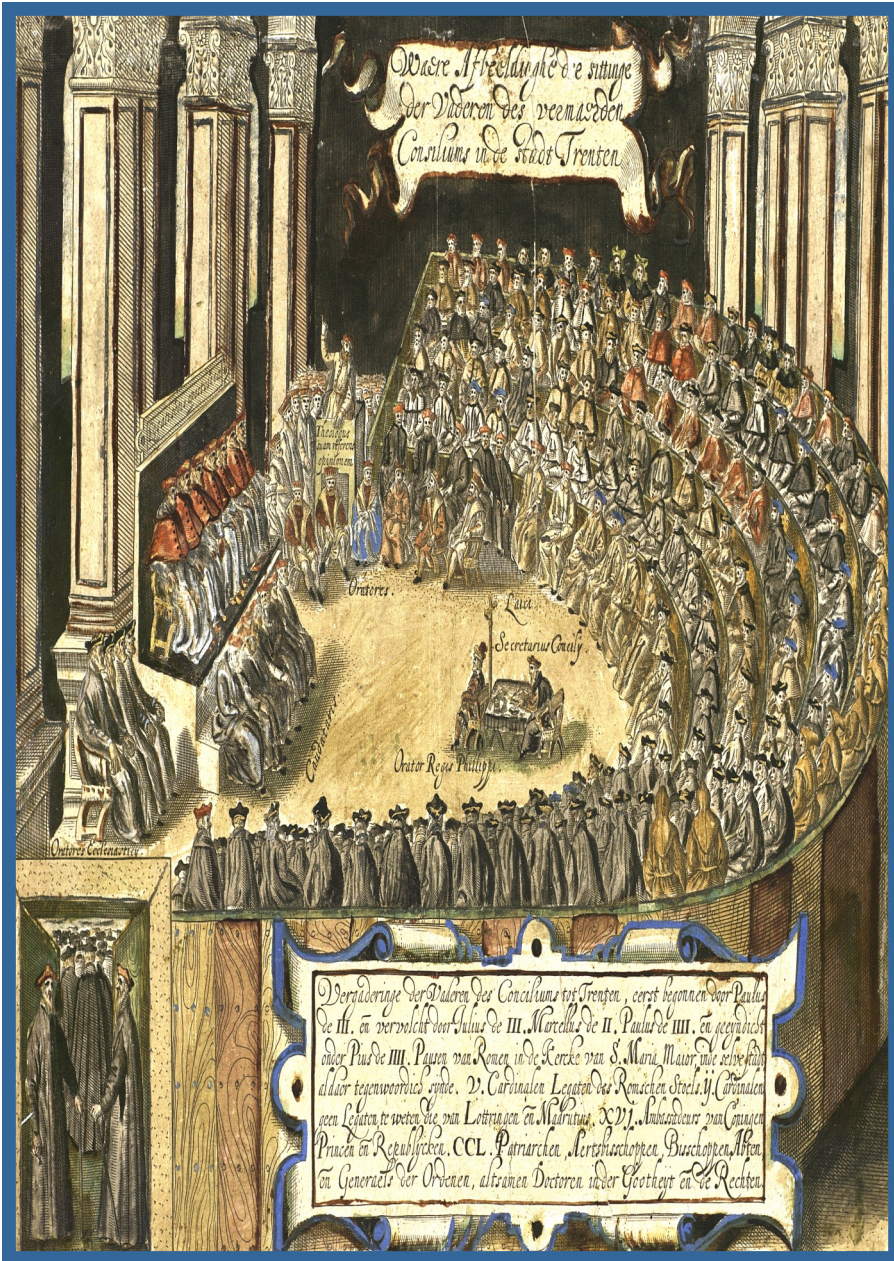 Waere Afbeeldinghe d'e sittinge
der Vaderen des vermaerden
Consiliums in de stadt Trenten
Theologus
suam referens
opinionem
Oratores.
Laici
Secretarius Concilij.
Orator Regis Philippi.
Oratores Ecclesiastici.
Vergaderinge der Vaderen des Conciliums tot Trenten, eerst begonnen door Paulus
de III. en̄ vervolcht door Julius de III. Marcellus de II. Paulus de IIII. en̄ geeyndicht
onder Pius de IIII. Pausen van Romen in de Kercke van S. Maria Maior, inde selve stadt
aldaer tegenwoordich synde. V. Cardinalen Legaten des Romschen Stoels. ij. Cardinalen
geen Legaten, te weten die van Lottringen en̄ Madrutius. XVJ. Ambassadeurs van Coningen
Princen en̄ Republijcken. CCL. Patriarchen, Aertsbisschoppen, Bisschoppen, Abten
en̄ Generaels der Ordenen, altsamen Doctoren in der Gootheyt en̄ de Rechten